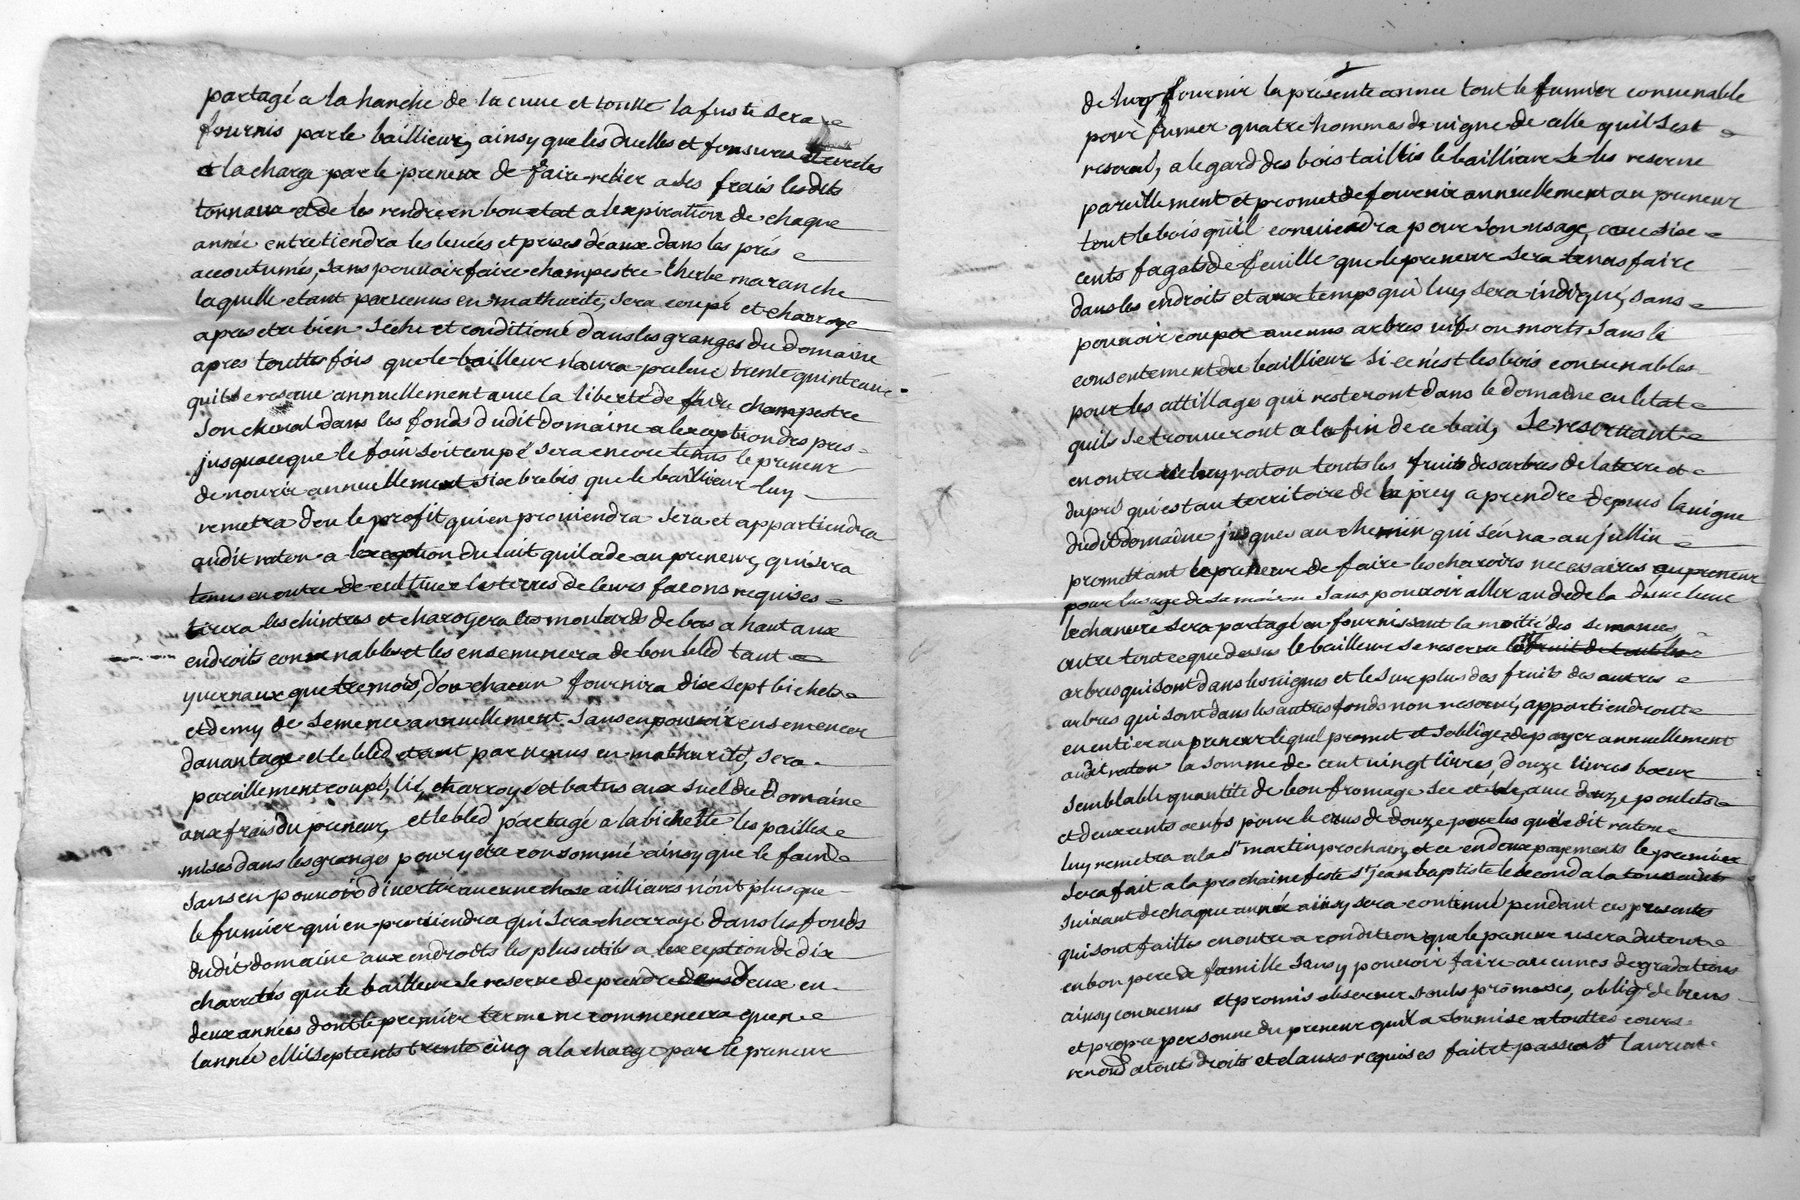 partagé a la hanche de la cuue et toutte la fuste sera
fournis par le baillieur, ainsy que les duelles et fonsures et cercles
et la charge par le preneur de faire relier a ses frais lesdits
tonnaux et de les rendre en bon etat a lexpiration de chaque
année entretiendra les leuées et prises deaux dans les prés
accoutumés, sans pouuoir faire champestre lherbe maranche
laquelle etant paruenus en mathurité, sera coupé et charroye
apres etre bien seché et conditioné dans les granges du domaine
apres touttes fois que le bailleur naura preleué trente quinteaux
quil se reserue annuellement auec la liberté de faire champestre
son cheual dans les fonds dudit domaine a lexception des pres
jusquaceque le foin soit coupé sera encore tenus le preneur
de nourir annuellement six brebis que le baillieur luy
remetra dou le profit qui en prouiendra sera et appartiendra
audit raton a lexception du lait quil cede au preneur, qui sera
tenus en outre de cultiuer les terres de leurs facons requises
tirera les chintres et charoyera les moulards de bas a haut aux
endroits conuenables et les ensemencera de bon bled tant
yuernaux que tremois, dou chacun fournira dix sept bichets
et demy de semence annuellement sans en pouuoir ensemencer
dauantage et le bled etant paruenus en mathurité, sera
pareillement coupé, lié, charroyé et batus aux suel du domaine
aux frais du preneur, et le bled partagé a la bichette les pailles
mises dans les granges pour y etre consommé ainsy que le foin
sans en pouuoir diuertir aucune chose ailliaurs nont plus que
le fumier qui en prouiendra qui sera charroye dans les fonds
dudit domaine aux endroits les plus utils a lexception de dix
charretés que le bailleur se reserue de prendre de deux en
deux années dont le premier terme ne commencera quen
lannée Mil sept cents trente cinq a la charge par le preneur
de luy fournir la presente annee tout le fumier conuenable
pour fumer quatre hommes de uigne de celle quil sest
reserué, a legard des bois taillis le baillieur se les reserue
pareillement et promet de fournir annuellement au preneur
tout le bois quil conuiendra pour son usage, auec six
cents fagots de feuille que le preneur sera tenus faire
dans les endroits et aux temps qui luy sera indiqué, sans
pouuoir couper aucuns arbres uifs ou morts sans le
consentement du baillieur si ce nest les bois conuenables
pour les attillages qui resteront dans le domaine en letat
quils se trouueront a la fin de ce bail, se reseruant
en outre raton touts les fruits des arbres de la terre et
du pré qui est au territoire de prey a prendre depuis la uigne
dudit domaine jusques au chemin qui sen na au jullin
promettant le preneur de faire les charoirs necessaires au preneur
pour lusage de sa maison sans pouuoir aller au dela dune lieue
le chanure sera partagé en fournissant la moitié des semences
outre tout ce que dessus le bailleur se reserue le fruit de touts les
arbres qui sont dans les uignes et le surplus des fruits des autres
arbres qui sont dans les autres fonds non reserué, appartiendront
en entier au preneur lequel promet et soblige de payer annuellement
audit raton la somme de cent uingt liures, douze liures beure
semblable quantité de bon fromage sec et , auec douze poulets
et deux cents oeufs pour le crus de douze poules que ledit raton
luy remetra a la st martin prochain, et ce en deux payements le premier
sera fait a la prochaine feste st jean baptiste le second a la toussaint
suiuant de chaque année ainsy sera continué pendant ces presentes
qui sont faittes en outre a condition que le preneur usera du tout
en bon pere de famille sans y pouuoir faire aucunes degradations
ainsy conuenus et promis obseruer soubs promesses, obligon de biens
et propre personne du preneur quil a soumise a touttes cours
renond a touts droits et clauses requises fait et passe a st laurent